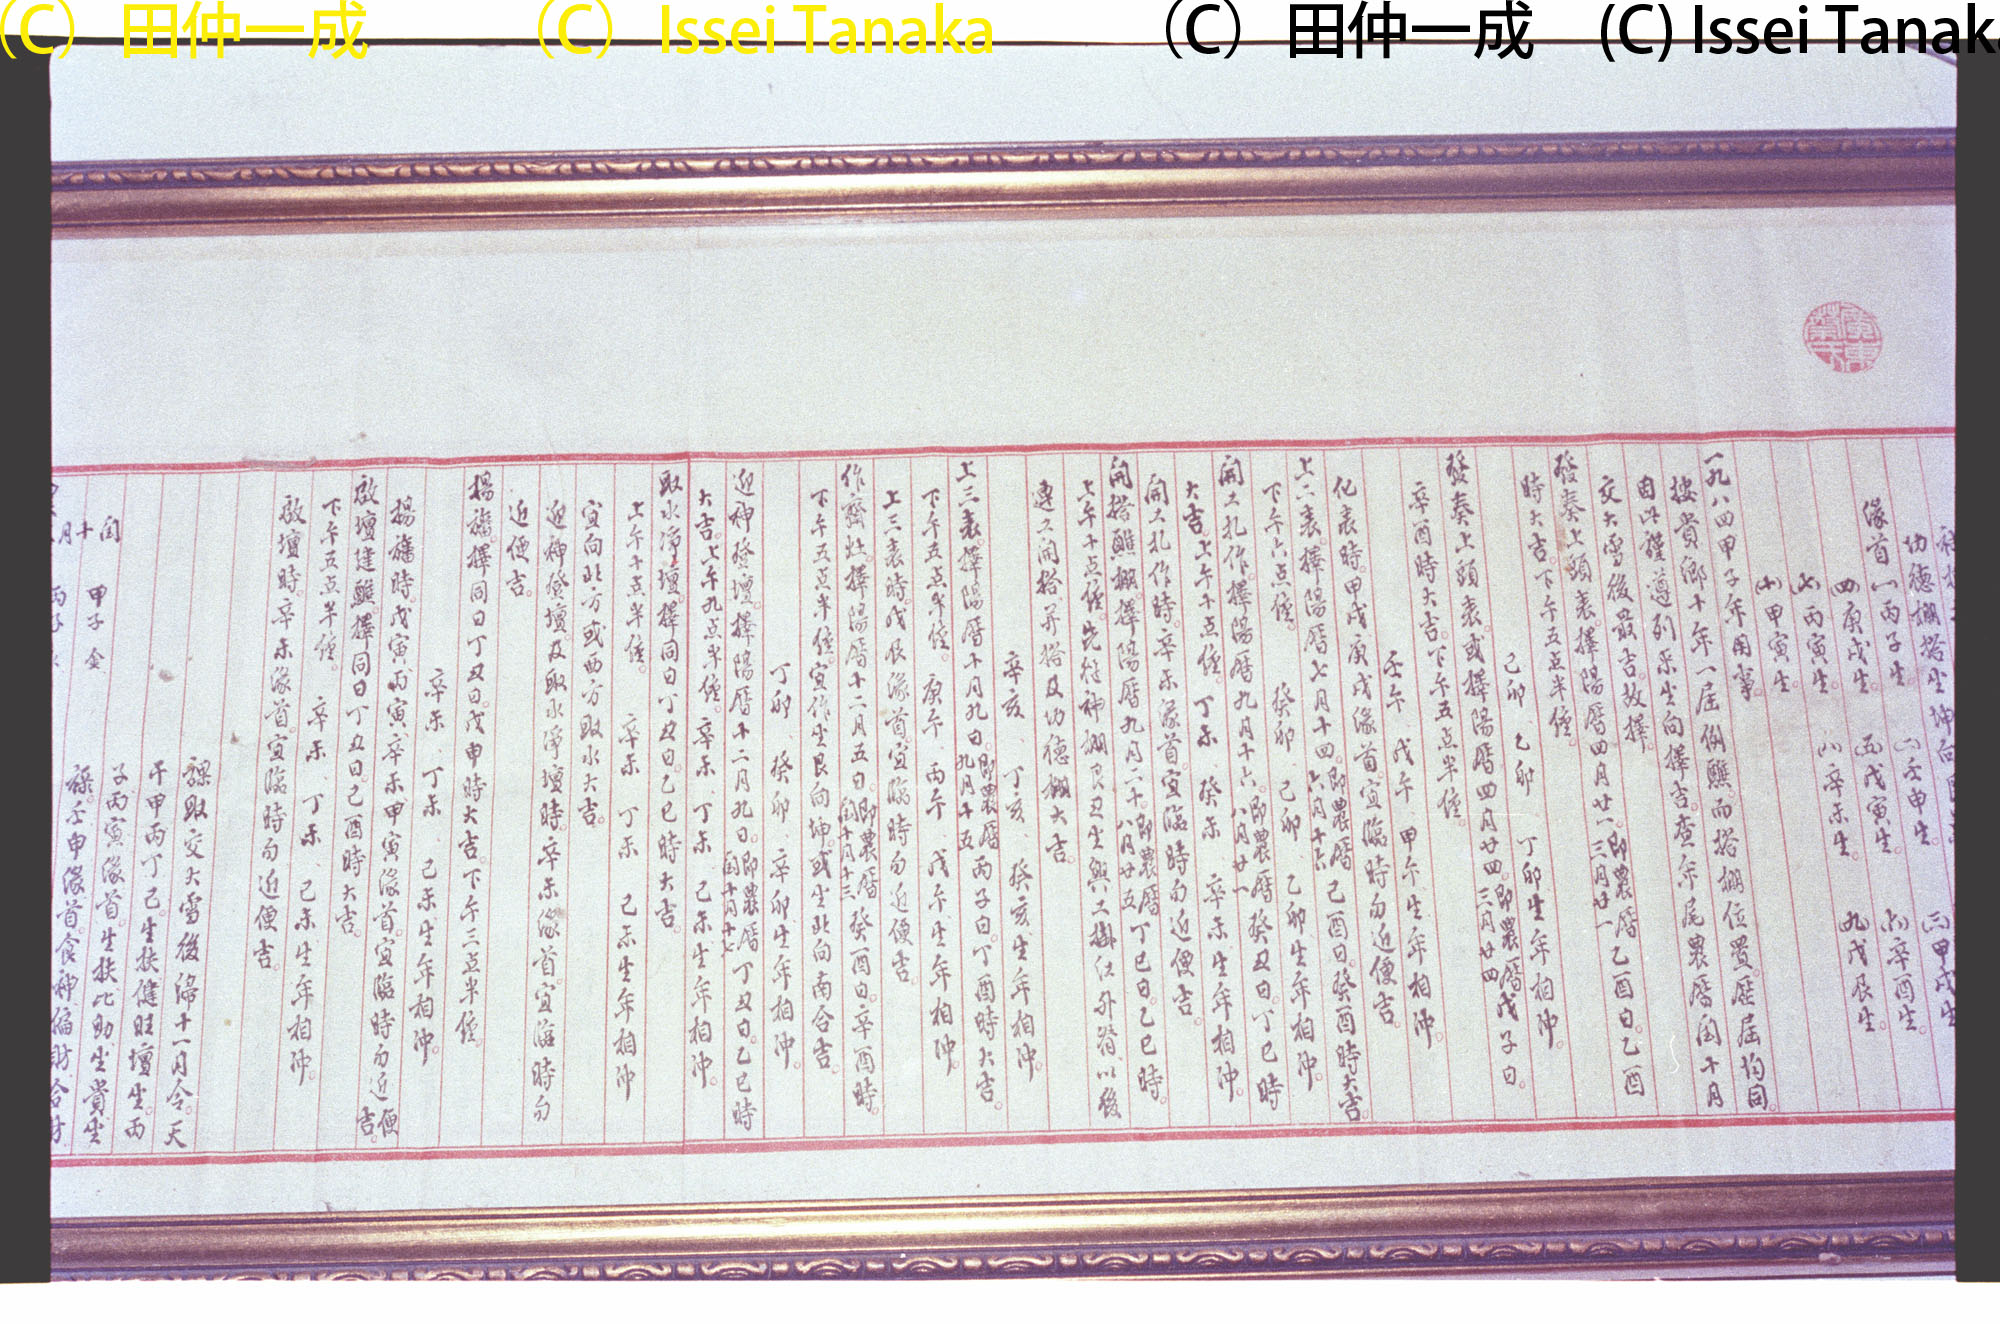 （C） 田仲一成
（C） Issei Tanaka
（C） 田仲一成
(C) Issei Tanak
功德棚搭坐坤向
三甲戌生
緣首 一丙子生 二壬申生 六辛酉生
四庚戌生 五戊寅生 九戊辰生
七丙寅生 八辛未生
十甲寅生
一九八四甲子年用事
按貴鄉十年一屆例醮而搭棚位置歷屆均同
由此謹遵列系坐向擇吉查年尾農曆閏十月
交大雪後最吉故擇
發奏上頭表擇陽曆四月廿一即農曆三月廿一乙酉日乙酉
時大吉下午五点半鐘
己卯 乙卯 丁卯生年相沖
發奏上頭表或擇陽曆四月廿四即農曆三月廿四戊子日
辛酉時大吉下午五点半鐘
壬午 戊午 甲午生年相沖
化表時甲戌庚戌緣首宜臨時勿近便吉
上二表擇陽曆七月十四即農曆六月十六己酉日癸酉時大吉
下午六点鐘 癸卯 己卯 乙卯生年相沖
開工扎作擇陽曆九月十六即農曆八月廿一癸丑日丁巳時
大吉上午十点鐘 丁未 癸未 辛未生年相沖
開工扎作時辛未緣首宜臨時勿近便吉
開搭醮棚擇陽曆九月二十即農曆八月廿五丁巳日乙巳時
上午十点鐘先從神棚艮丑坐興工掛紅外簷以後
連工開搭并搭及功德棚大吉
辛亥 丁亥 癸亥生年相沖
上三表擇陽曆十月九日即農曆九月十五丙子日丁酉時大吉
下午五点半鐘 庚午 丙午 戊午生年相沖
上三表時戊辰緣首宜臨時勿近便吉
作齋灶擇陽曆十二月五日即農曆閏十月十三癸酉日辛酉時
下午五点半鐘宜作坐艮向坤或坐北向南合吉
丁卯 癸卯 辛卯生年相沖
迎神登壇擇陽曆十二月九日即農曆閏十月十七丁丑日乙巳時
大吉上午九点半鐘 辛未 丁未 己未生年相沖
取水淨壇擇同日丁丑日乙巳時大吉
上午十点半鐘 辛未 丁未 己未生年相沖
宜向北方或西方取水大吉
迎神登壇及取水淨壇時辛未緣首宜臨時勿
近便吉
揚旛擇同日丁丑日戊申時大吉下午三点半鐘
辛未 丁未 己未生年相沖
揚旛時戊寅丙寅辛未甲寅緣首宜臨時勿近便吉
啟壇建醮擇同日丁丑日己酉時大吉
下午五点半鐘 辛未 丁未 己未生年相沖
啟壇時辛未緣首宜臨時勿近便吉
課取交大雪後淂十一月令天
干甲丙丁己生扶健旺壇坐丙
子丙寅緣首生扶比助坐貴坐
祿壬申緣首食神偏財合財
閏十月
甲子金
丙子水